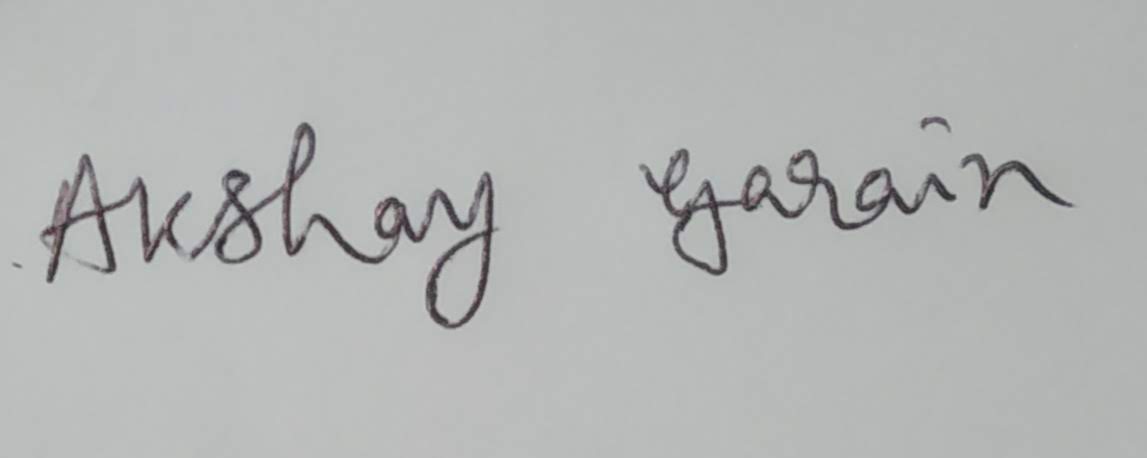 Akshay Garain